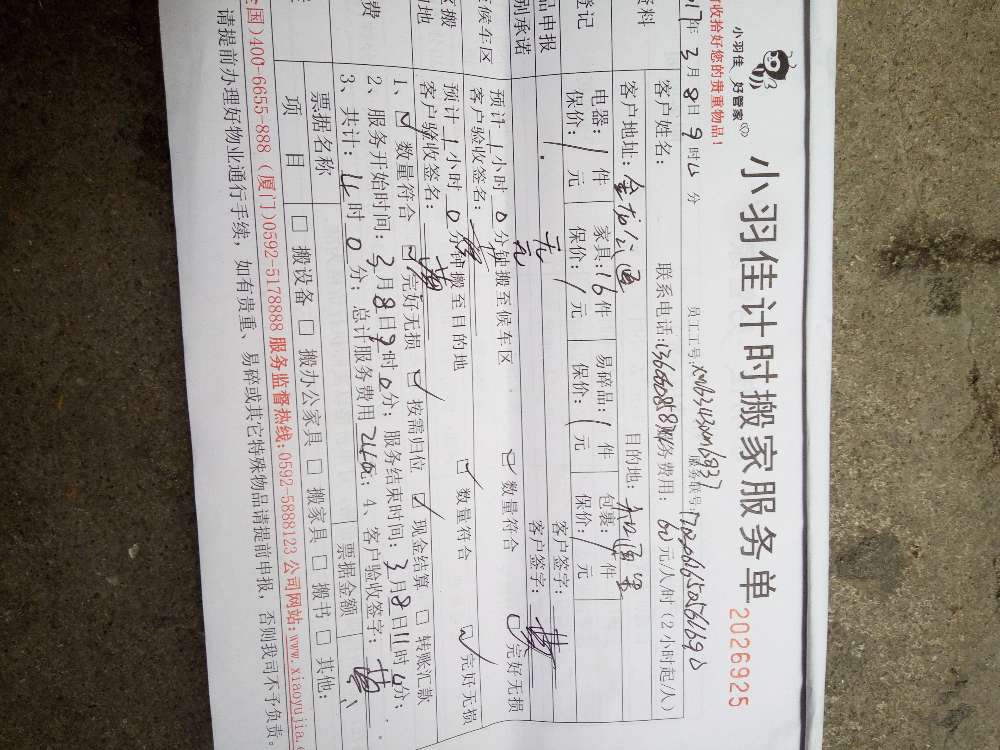 小羽佳 好管家
小羽佳计时搬家服务单 2026925
收拾好您的贵重物品!
17年3月8日9时0分 员工工号: 服务联号:
资料
客户姓名: 联系电话: 服务费用: 60元/人/时(2小时起/人)
客户地址: 目的地:
登记
电器: 1件 家具:16件 易碎品: 1件 包裹: 件
保价: 元 保价: 元 保价: 元 保价: 元
品申报 无 客户签字:
别承诺 无 客户签字:
候车区
预计 1小时0分钟搬至候车区 数量符合 完好无损
客户验收签名:
区搬
的地
预计 1小时0分钟搬至目的地 数量符合 完好无损
客户验收签名:
费
1、 数量符合 完好无损 按需归位 现金结算 转账汇款
2、服务开始时间: 3月8日9时0分; 服务结束时间: 3月8日11时0分;
3、共计: 4时0分; 总计服务费用 240元; 4、客户验收签字:
票据名称 票据金额
项目 搬设备 搬办公家具 搬家具 搬书 其他:
国)400-6655-888 (厦门)0592-5178888 服务监督热线:0592-5888123 公司网站:www.xiaoyujia.c
请提前办理好物业通行手续,如有贵重、易碎或其它特殊物品请提前申报,否则我司不予负责。